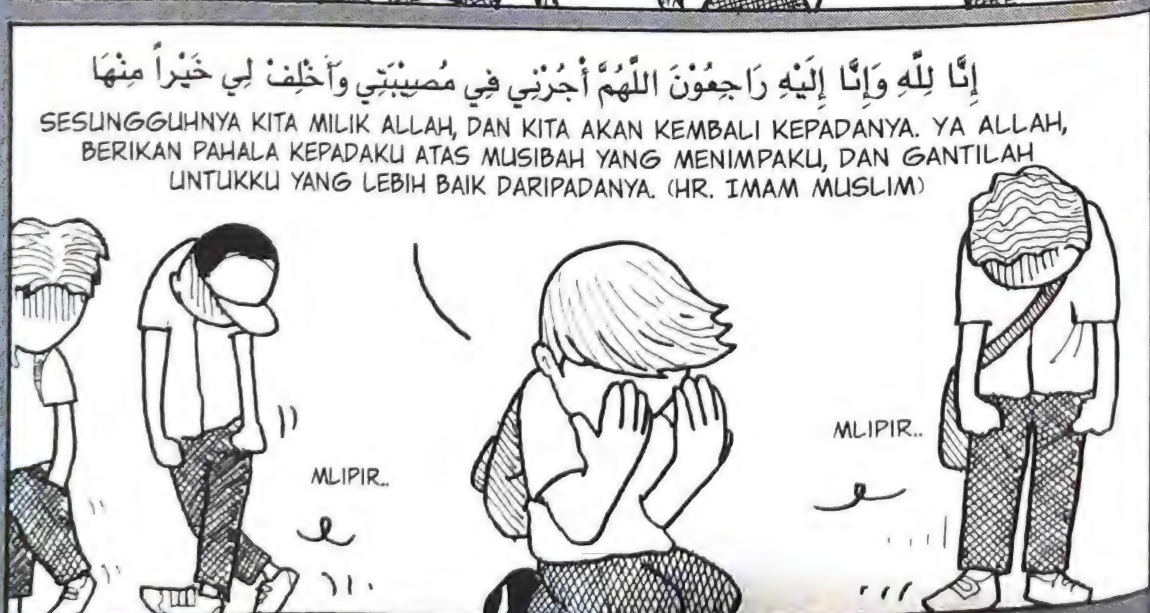 إِنَّا لِلَّهِ وَإِنَّا إِلَيْهِ رَاجِعُوْنَ اللَّهُمَّ أْجُرْنِي فِي مُصِيْبَتِي وَأَخْلِفْ لِي خَيْراً مِنْهَا
SESUNGGUHNYA KITA MILIK ALLAH, DAN KITA AKAN KEMBALI KEPADANYA. YA ALLAH,
BERIKAN PAHALA KEPADAKU ATAS MUSIBAH YANG MENIMPAKU, DAN GANTILAH
UNTUKKU YANG LEBIH BAIK DARIPADANYA. (HR. IMAM MUSLIM)
MLIPIR..
MLIPIR..